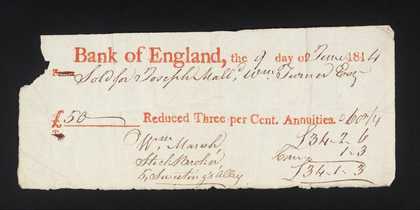 Bank of England, the 9 day of June 1814
Sold for Joseph Mall, Wm. Turner Esqr
£50 Reduced Three per Cent. Annuities. @ 68 1/4
Wm. Marsh, £34-2-6
Stock Broker, 1-3
5, Sweeting's Alley £34-1-3